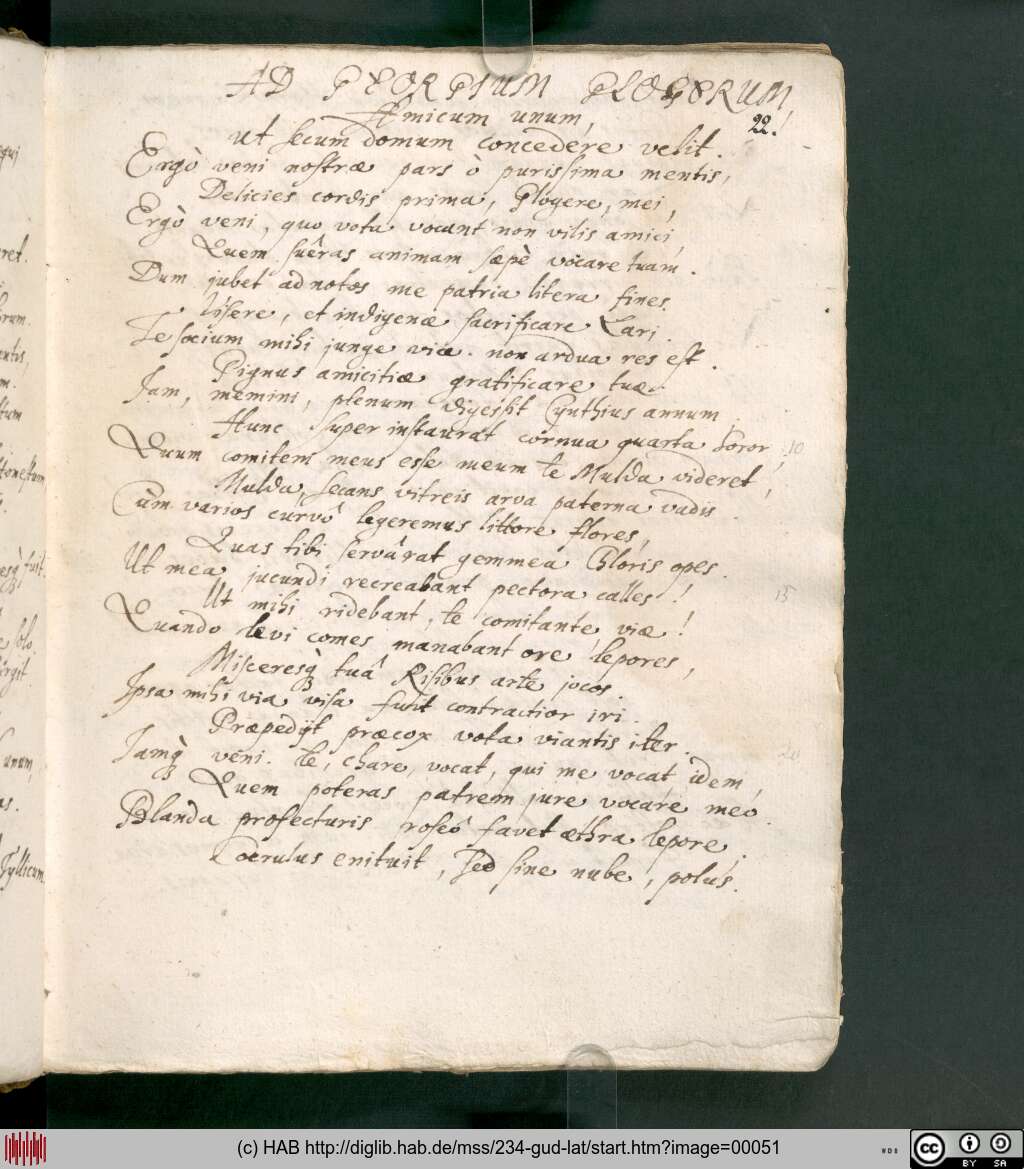 AD GEORGIUM GLOGERUM
Amicum unum,
22.
ut secum domum concedere velit.
Ergò veni nostræ pars ò purissima mentis,
Delicies cordis prima, Glogere, mei,
Ergò veni, quo vota vocant non vilis amici,
Quem suêras animam sæpè vocare tuam.
Dum jubet ad notos me patria litera fines
Visere, et indigenæ sacrificare Lari,
Te socium mihi junge viæ. non ardua res est.
Pignus amicitiæ gratificare tuæ.
Iam, memini, plenum digessit Cynthius annum
Hunc super instaurat cornua quarta soror,
10
Quum comitem meus esse meum te Mulda videret,
Mulda, secans vitreis arva paterna vadis.
Cùm varios curvô legeremus littore flores,
Quas tibi servârat gemmea Chloris opes.
Ut mea jucundi recreabant pectora calles!
15
Ut mihi ridebant, te comitante, viæ!
Quando levi comes manabant ore lepores,
Misceresq tuâ Risibus arte jocos.
Ipsa mihi via visa fuit contractior iri.
Præpedijt præcox vota viantis iter.
20
Iamq veni. te, chare, vocat, qui me vocat idem,
Quem poteras patrem jure vocare meo.
Blanda profecturis roseô favet æthra lepore.
Coerulus enituit, sed sine nube, polus.
equi
ret.
irum.
entis,
m.
tum
tonestum
s.
esq fuit.
e solo.
ergit.
unum,
as.
Tyllicum.
(c) HAB http://diglib.hab.de/mss/234-gud-lat/start.htm?image=00051
WDB
cc
BY SA